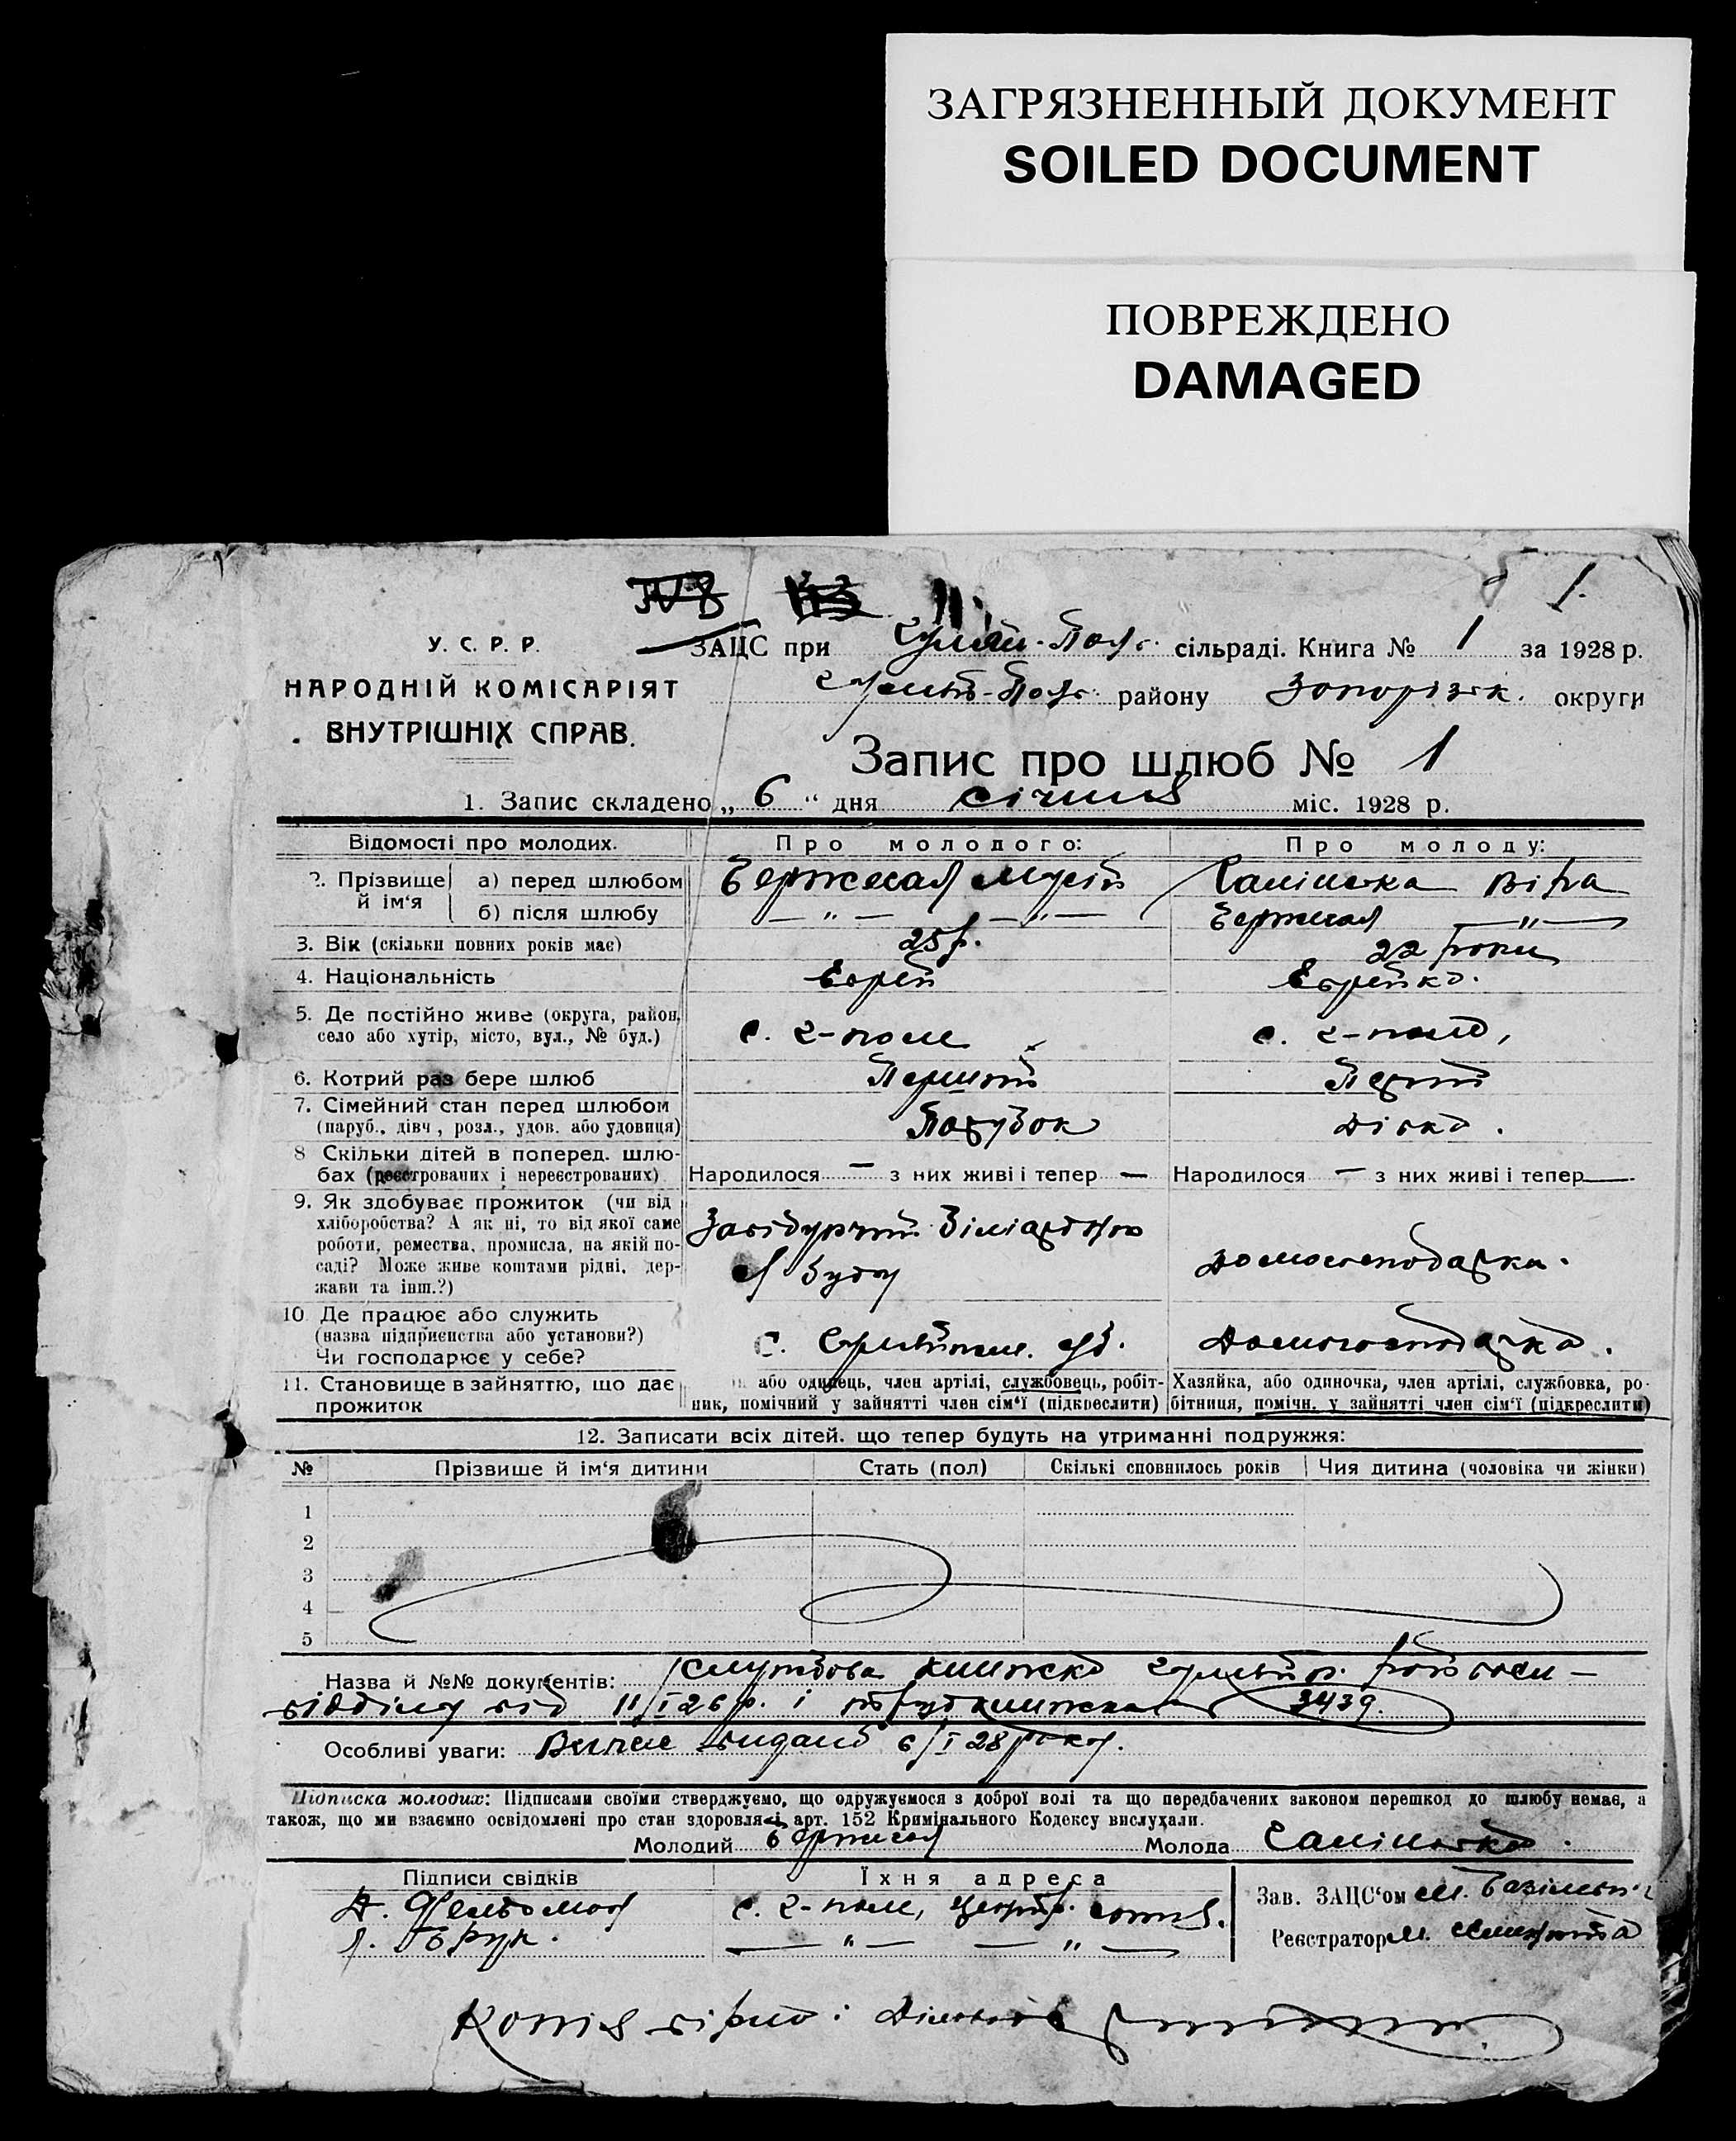 ЗАГРЯЗНЕННЫЙ ДОКУМЕНТ
SOILED DOCUMENT
ПОВРЕЖДЕНО
DAMAGED
1.
У. С. Р. Р.
НАРОДНІЙ КОМІСАРІЯТ
ВНУТРІШНІХ СПРАВ.
ЗАЦС при Гуляй-Пол. сільраді. Книга № 1 за 1928 р.
району Запорізьк. округи
Запис про шлюб № 1
1. Запис складено „ 6 " дня січня міс. 1928 р.
Відомості про молодих. Про молодого: Про молоду:
2. Прізвище й ім'я а) перед шлюбом Мусій Віра
б) після шлюбу — " — — " — — " —
3. Вік (скільки повних років має) 25 р. 22 роки
4. Національність Єврей Єврейка.
5. Де постійно живе (округа, район,
село або хутір, місто, вул., № буд.) с. Г-поле с. Г-поле,
6. Котрий раз бере шлюб Перший Перший
7. Сімейний стан перед шлюбом
(паруб., дівч., розл., удов. або удовиця) Парубок Дівка.
8 Скільки дітей в поперед. шлю-
бах (реєстрованих і нереєстрованих) Народилося — з них живі і тепер — Народилося — з них живі і тепер —
9. Як здобуває прожиток (чи від
хліборобства? А як ні, то від якої саме
роботи, ремества, промисла, на якій по-
саді? Може живе коштами рідні, дер-
жави та інш.?) Завідуючий Більярдною Домогосподарка.
10. Де працює або служить
(назва підприємства або установи?)
Чи господарює у себе? С. Домогосподарка.
11. Становище в зайняттю, що дає
прожиток
або одинець, член артілі, службовець, робіт-
ник, помічний у зайнятті член сім'ї (підкреслити)
Хазяйка, або одиночка, член артілі, службовка, ро-
бітниця, помічн. у зайнятті член сім'ї (підкреслити)
12. Записати всіх дітей. що тепер будуть на утриманні подружжя:
№ Прізвише й ім'я дитини Стать (пол) Скількі сповнилось років Чия дитина (чоловіка чи жінки)
1
2
3
4
5
Назва й №№ документів: книжка
відділу від 11/I 26 р. і 3439.
Особливі уваги: видано 6/I 28 року.
Підписка молодих: Підписами своїми стверджуємо, що одружуємося з доброї волі та що передбачених законом перешкод до шлюбу немає, а
також, що ми взаємно освідомлені про стан здоровля й арт. 152 Кримінального Кодексу вислухали.
Молодий Молода
Підписи свідків Їхня адреса
А. Фельдман с. Г-поле, сотня.
Л. Брук. — " — — " —
Зав. ЗАЦС'ом
Реєстратор
Копія вірна: Діловод